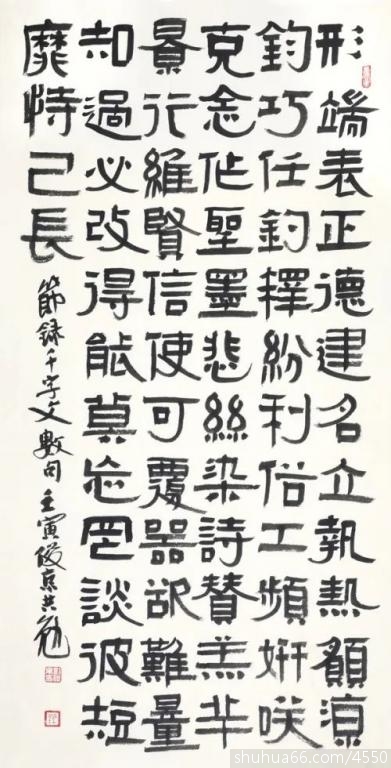 形端表正德建名立執熱願涼
鈞巧任釣釋紛利俗工頻妍咲
克念作聖墨悲絲染詩贊羔羊
景行維賢信使可覆器欲難量
知過必改得能莫忘罔談彼短
靡恃己長
節録千字文數句壬寅俊京共勉
shuhua66.com/4550